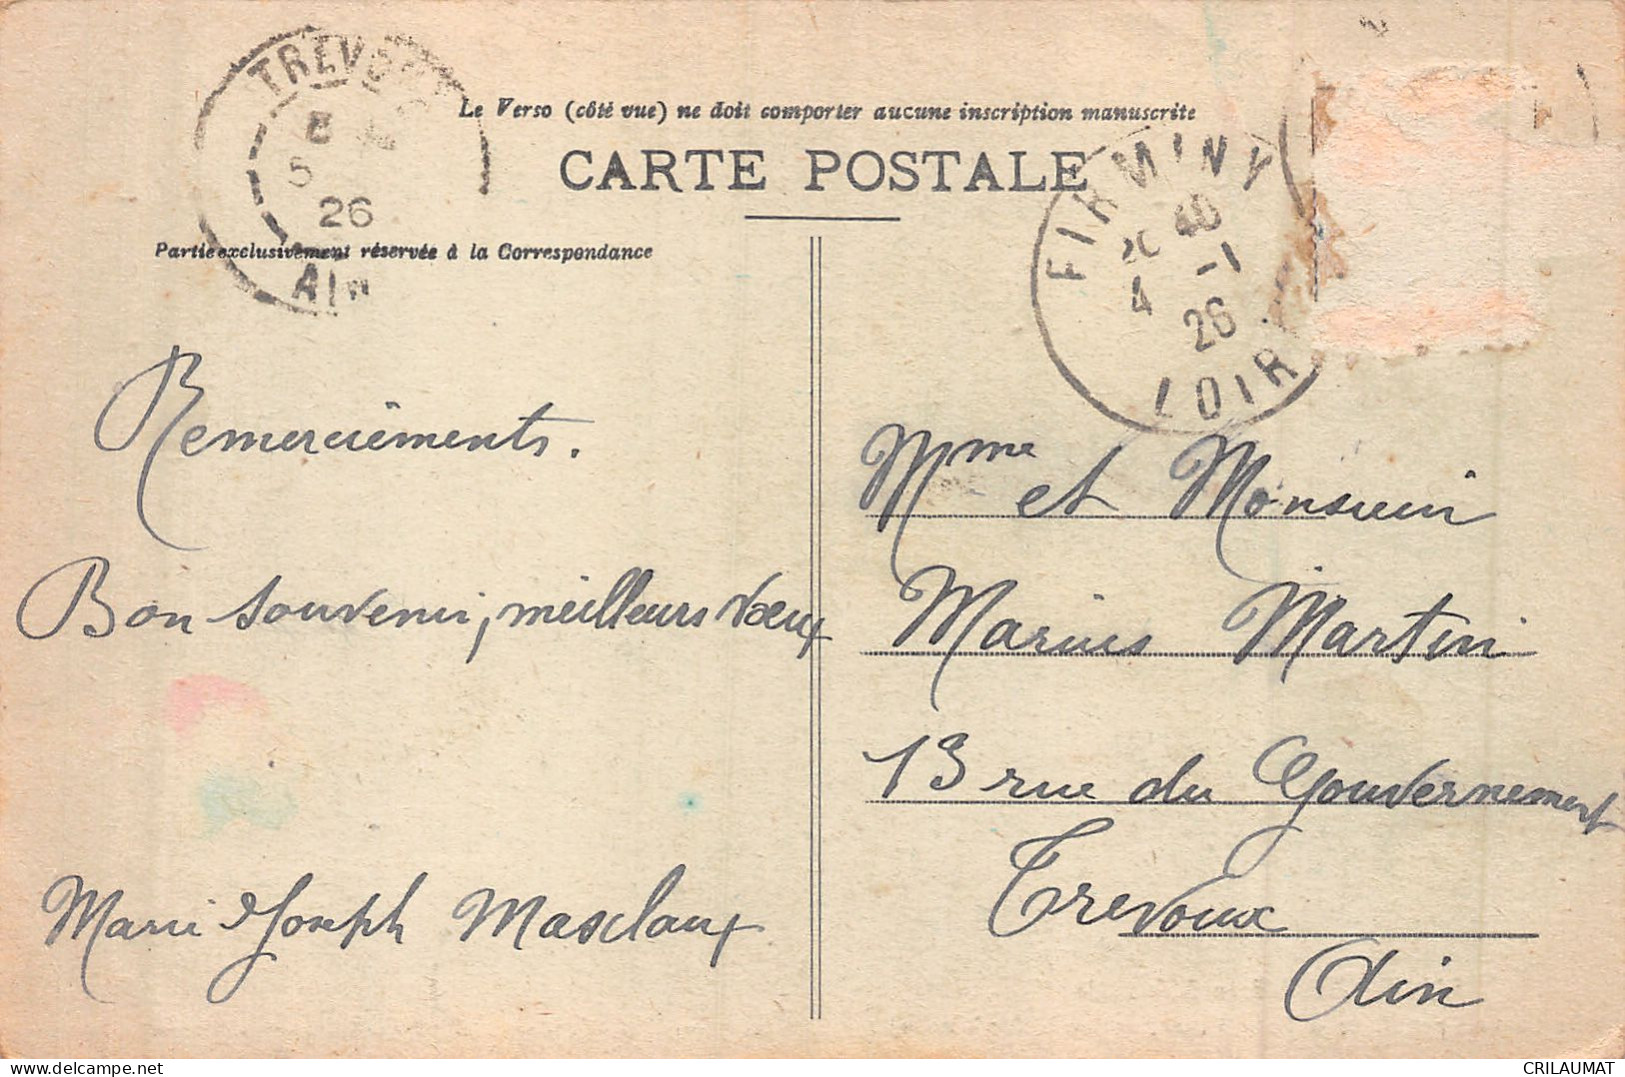 TREVOUX
5
26
AIN
Le Verso (côté vue) ne doit comporter aucune inscription manuscrite
CARTE POSTALE
FIRMINY
20 40
4 -1
26
LOIRE
Partie exclusivement réservée à la Correspondance
Remerciements.
Bon souvenir, meilleurs vœux
Marie Joseph Masclaux
Mme et Monsieur
Marius Martin
13 rue du Gouvernement
Trevoux
Ain
delcampe.net
CRILAUMAT